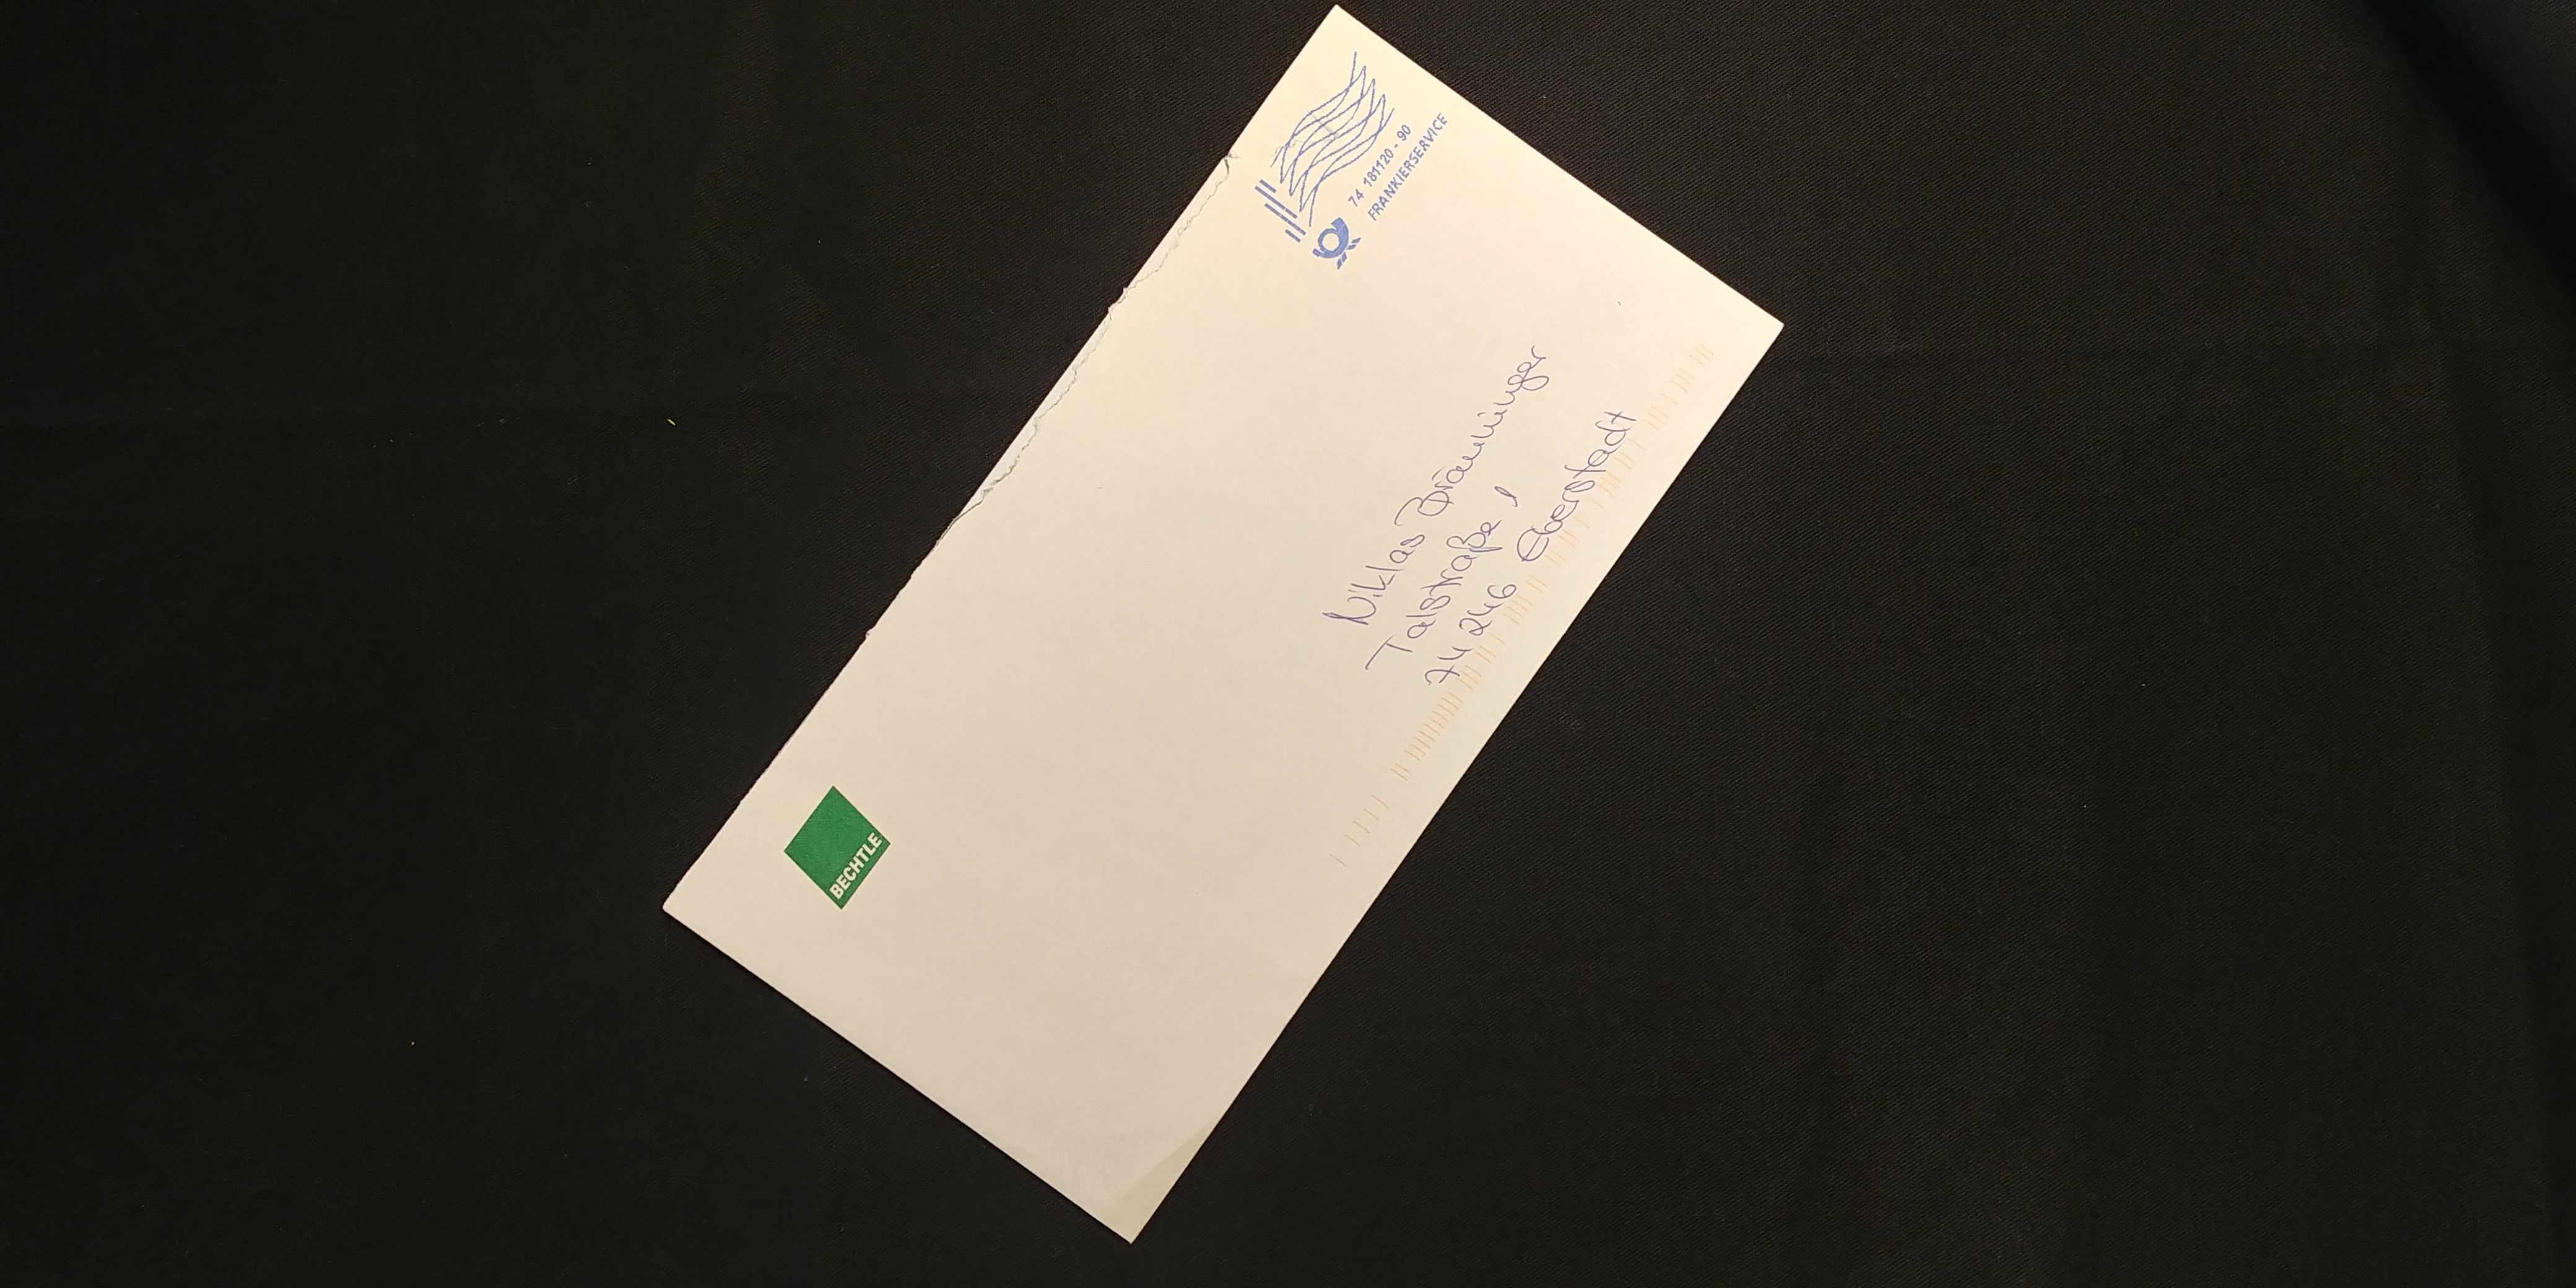 BECHTLE
74 181120 - 90
FRANKIERSERVICE
Niklas Bräuninger
Talstraße 1
74246 Eberstadt